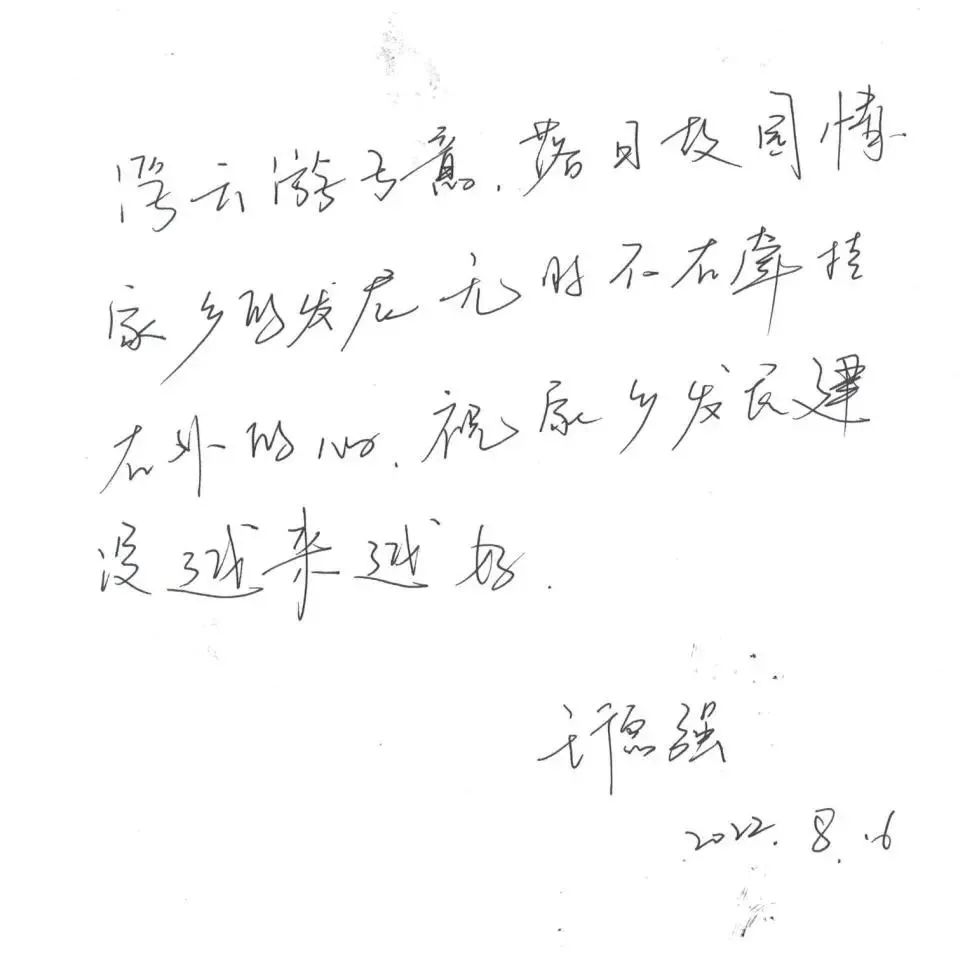 浮云游子意,落日故园情
家乡的发展无时不在牵挂
在外的心,祝家乡发展建
设越来越好.
德强
2022.8.16